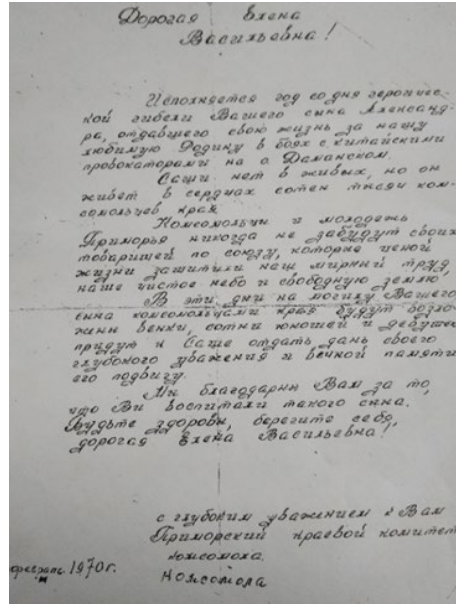 Дорогая Елена
Васильевна!
Исполняется год со дня героичес-
кой гибели Вашего сына Александ-
ра, отдавшего свою жизнь за нашу
любимую Родину в боях с китайскими
провокаторами на о. Даманском.
Саши нет в живых, но он
живет в сердцах сотен тысяч ком-
сомольцев края.
Комсомольцы и молодежь
Приморья никогда не забудут своих
товарищей по союзу, которые ценой
жизни защитили наш мирный труд,
наше чистое небо и свободную землю,
В эти дни на могилу Вашего
сына комсомольцами края будут возло-
жены венки, сотни юношей и девушек
придут к Саше отдать дань своего
глубокого уважения и вечной памяти
его подвигу.
Мы благодарны Вам за то,
что Вы воспитали такого сына.
Будьте здоровы, берегите себя,
дорогая Елена Васильевна!
с глубоким уважением к Вам
Приморский краевой комитет
комсомола.
февраль 1970г.
Комсомола